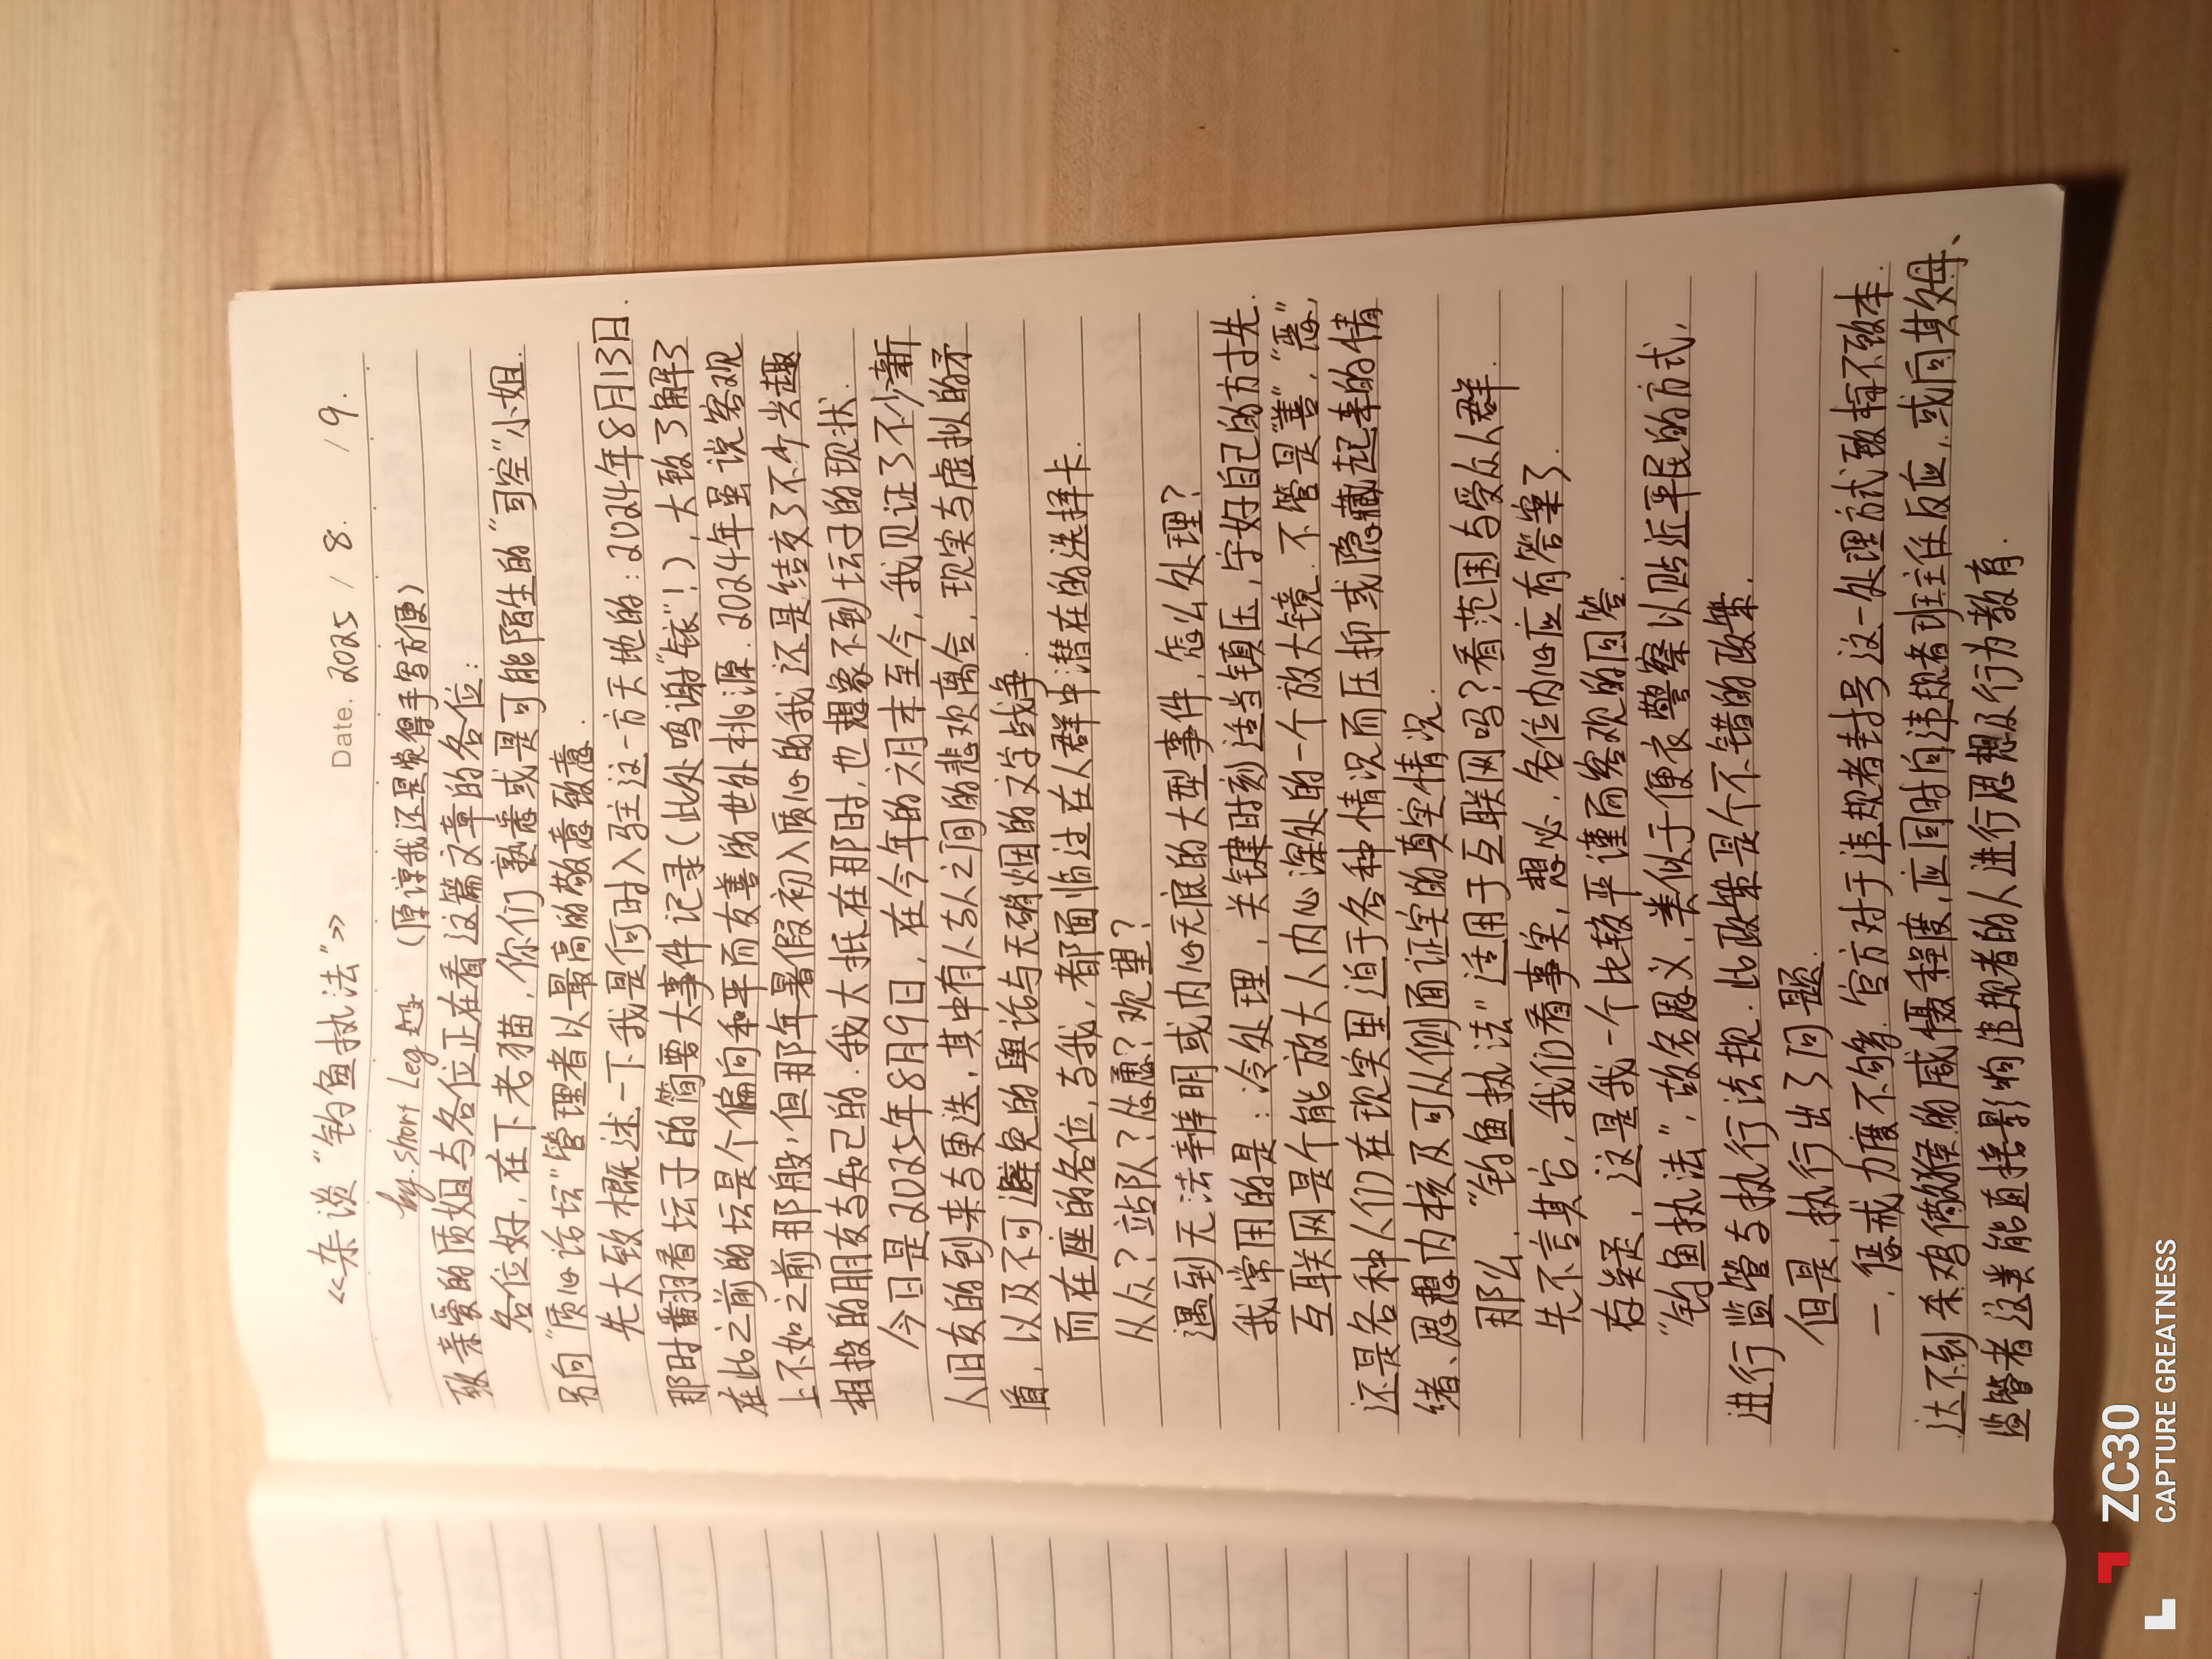 Date. 2025 / 8. / 9.
《杂谈“钓鱼执法”》
by. Short Leg (原谅我还是觉得手写方便)
致亲爱的质姐与各位正在看这篇文章的各位:
各位好,在下老猫,你们熟悉或是可能陌生的“司空”小姐.
另向“质心话坛”管理者以最高的敬意致意.
先大致概述一下我是何时入驻这一方天地的:2024年8月13日.
那时翻看坛子的简要大事件记录(此处鸣谢“铱”!),大致了解了
在此之前的坛是个偏向和平而友善的世外桃源.2024年虽说客观
上不如之前那般,但那年暑假初入质心的我还是结交了不少兴趣
相投的朋友与知己的.我大抵在那时,也想象不到坛子的现状.
今日是2025年8月9日,在今年的六月末至今,我见证了不少新
人旧友的到来与更迭,其中有人与人之间的悲欢离合,现实与虚拟的矛
盾,以及不可避免的舆论与无硝烟的文字战争.
而在座的各位,与我,都面临过在人群中潜在的选择卡.
从众?站队?怂恿?观望?
遇到无法辩明或内心无底的大型事件,怎么处理?
我常用的是:冷处理,关键时刻适当镇压,守好自己的方寸先.
互联网是个能放大人内心深处的一个放大镜.不管是“善”,“恶”,
还是各种人们在现实里迫于各种情况而压抑或隐藏起来的情
绪、思想内核及可从侧面证实的真实情况.
那么,“钓鱼执法”适用于互联网吗?看范围与受众人群.
先不言其它,我们看事实,想必,各位内心应有答案了.
存疑,这是我一个比较平谨而客观的回答.
“钓鱼执法”,故名思义,类似于便衣警察以贴近平民的方式,
进行监管与执行法规.此政策是个不错的政策.
但是,执行出了问题.
一.惩戒力度不够.官方对于违规者封号这一处理方式致标不致本.
达不到杀鸡儆猴的威慑程度,应同时向违规者班主任反应,或向其父母、
监管者这类能直接影响违规者的人进行思想及行为教育.
ZC30
CAPTURE GREATNESS